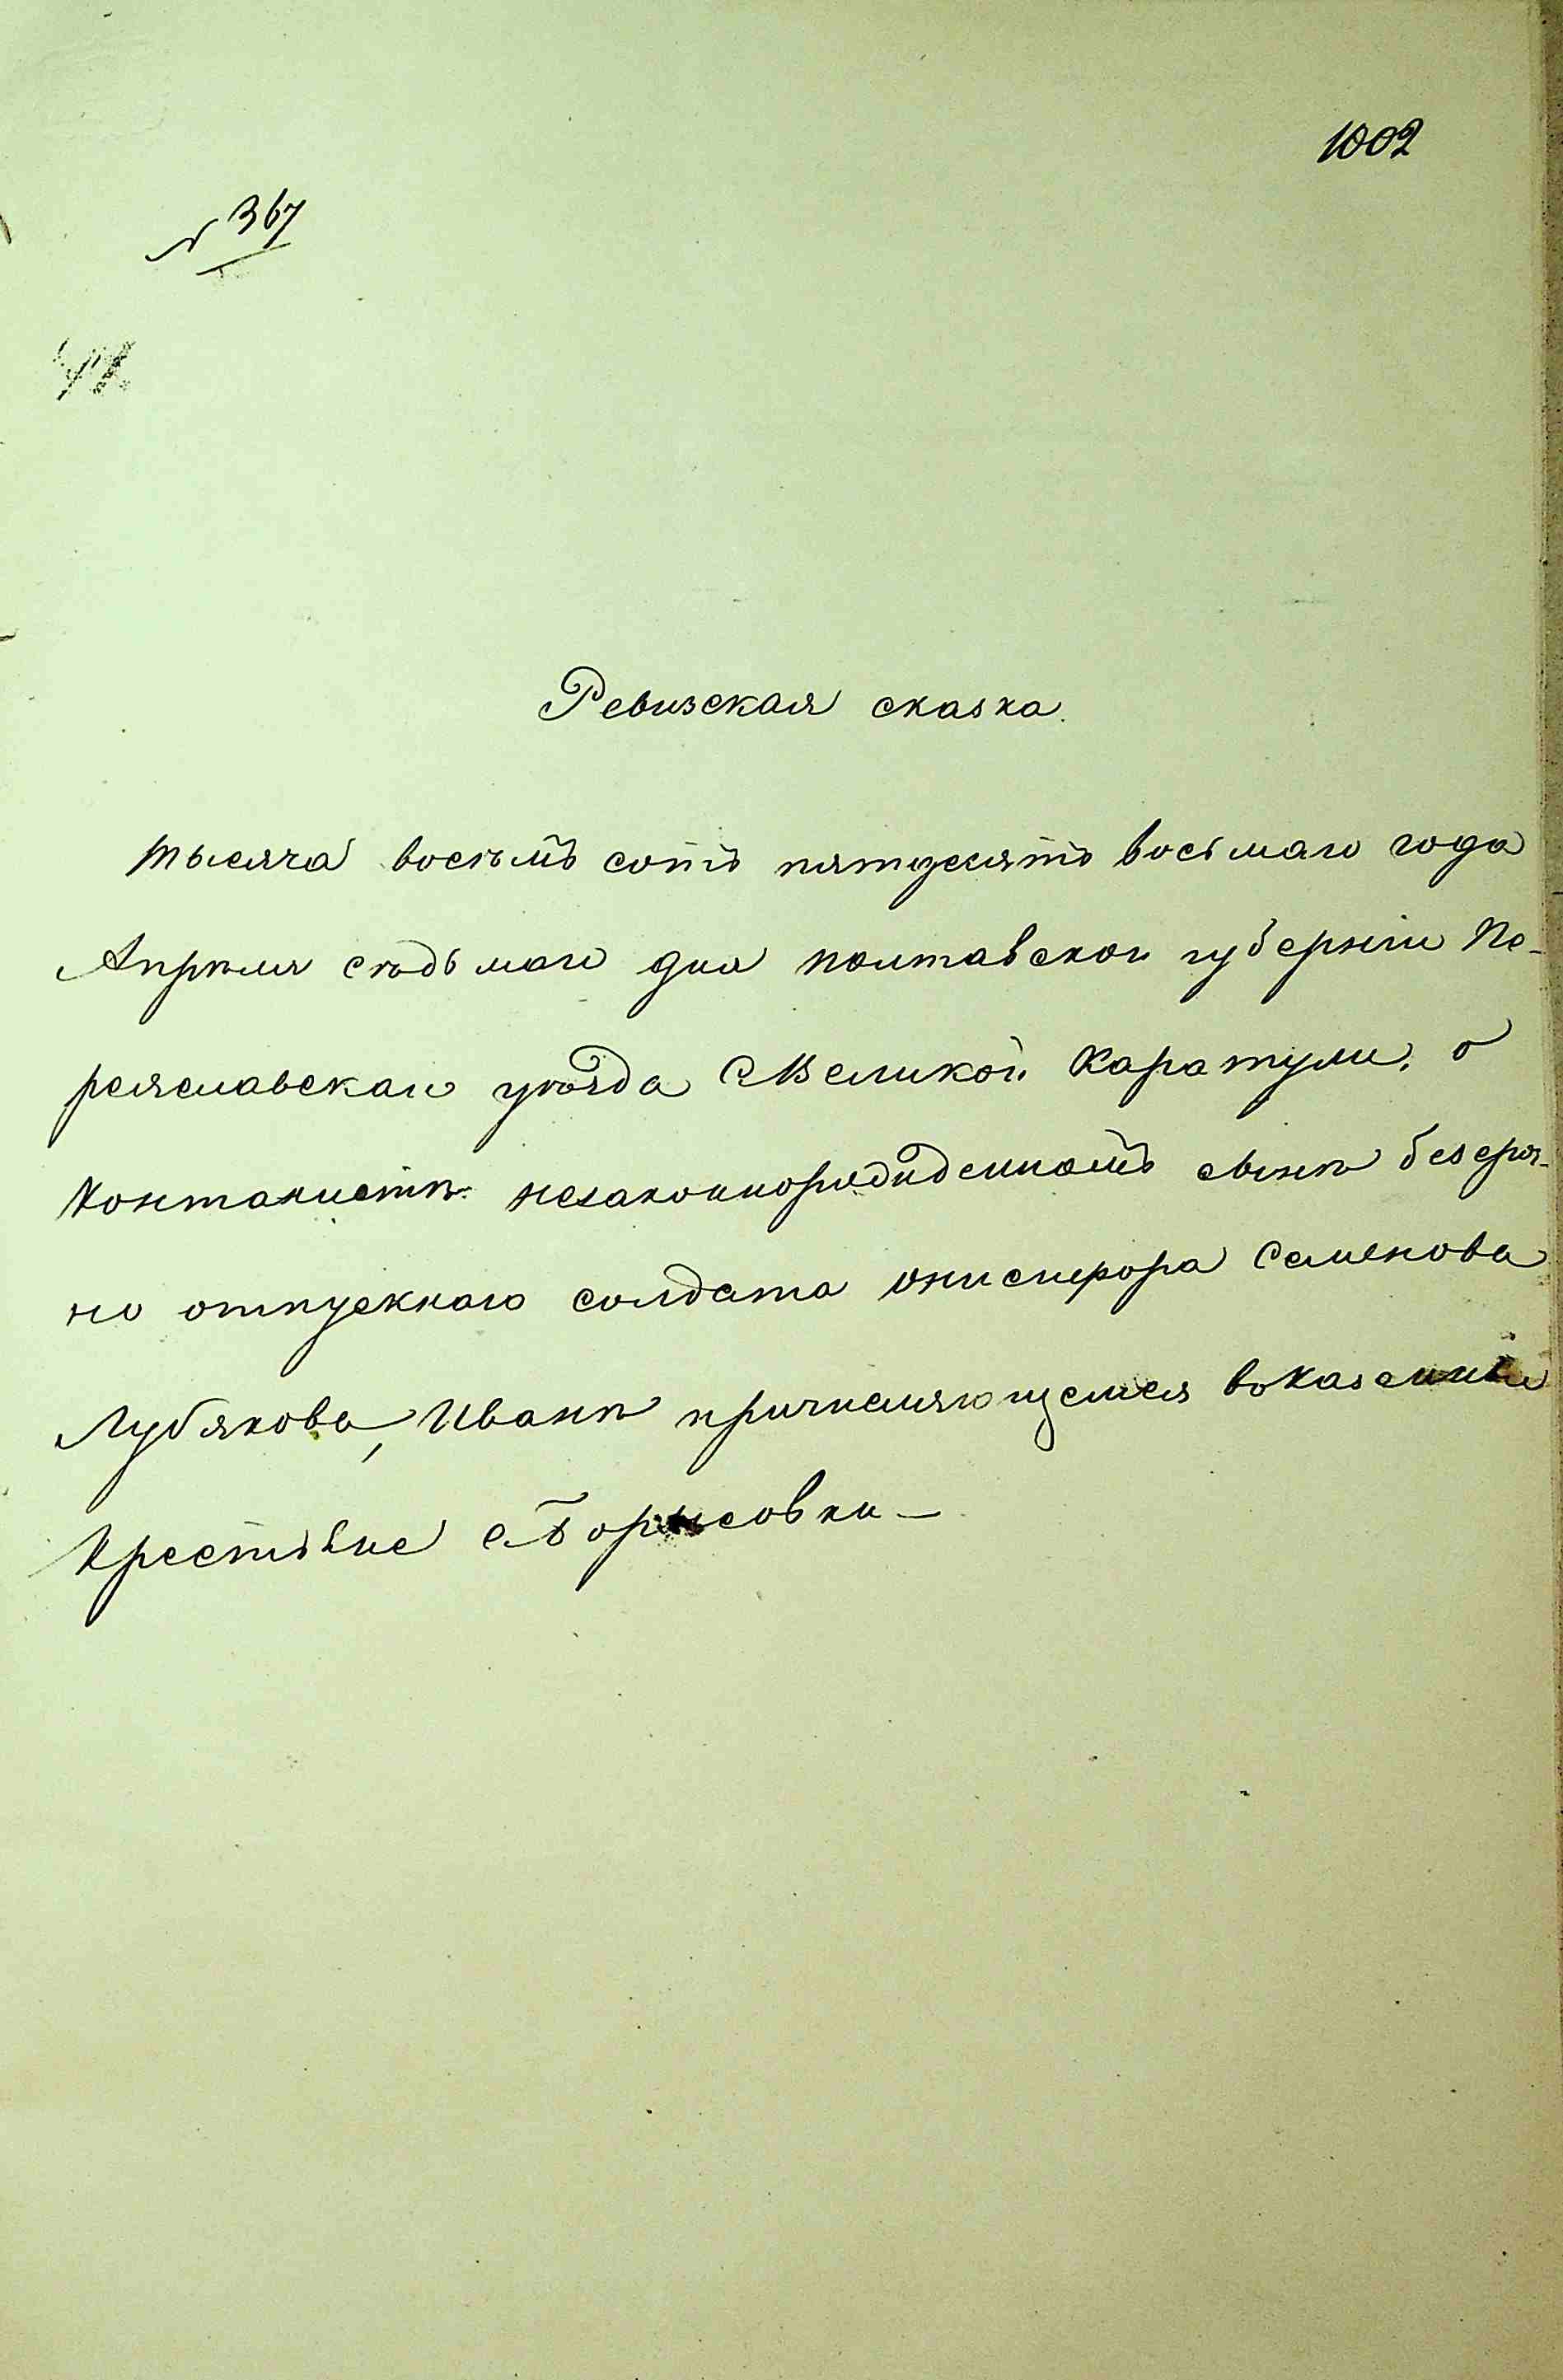 1002
№ 367
Ревизская сказка.
тысяча восемъ сотъ пятдесятъ восьмаго года
Апреля сѣдьмаго дня полтавской губерніи Пе-
реяславскаго уѣзда С Великой Каратули, о
Контанистѣ незаконнорожденномъ сынѣ безсро-
но отпускнаго солдата Онисифора Семенова
Лубякова, Иванѣ причисляющемся въ казенные
Крестьяне с Борисовки —